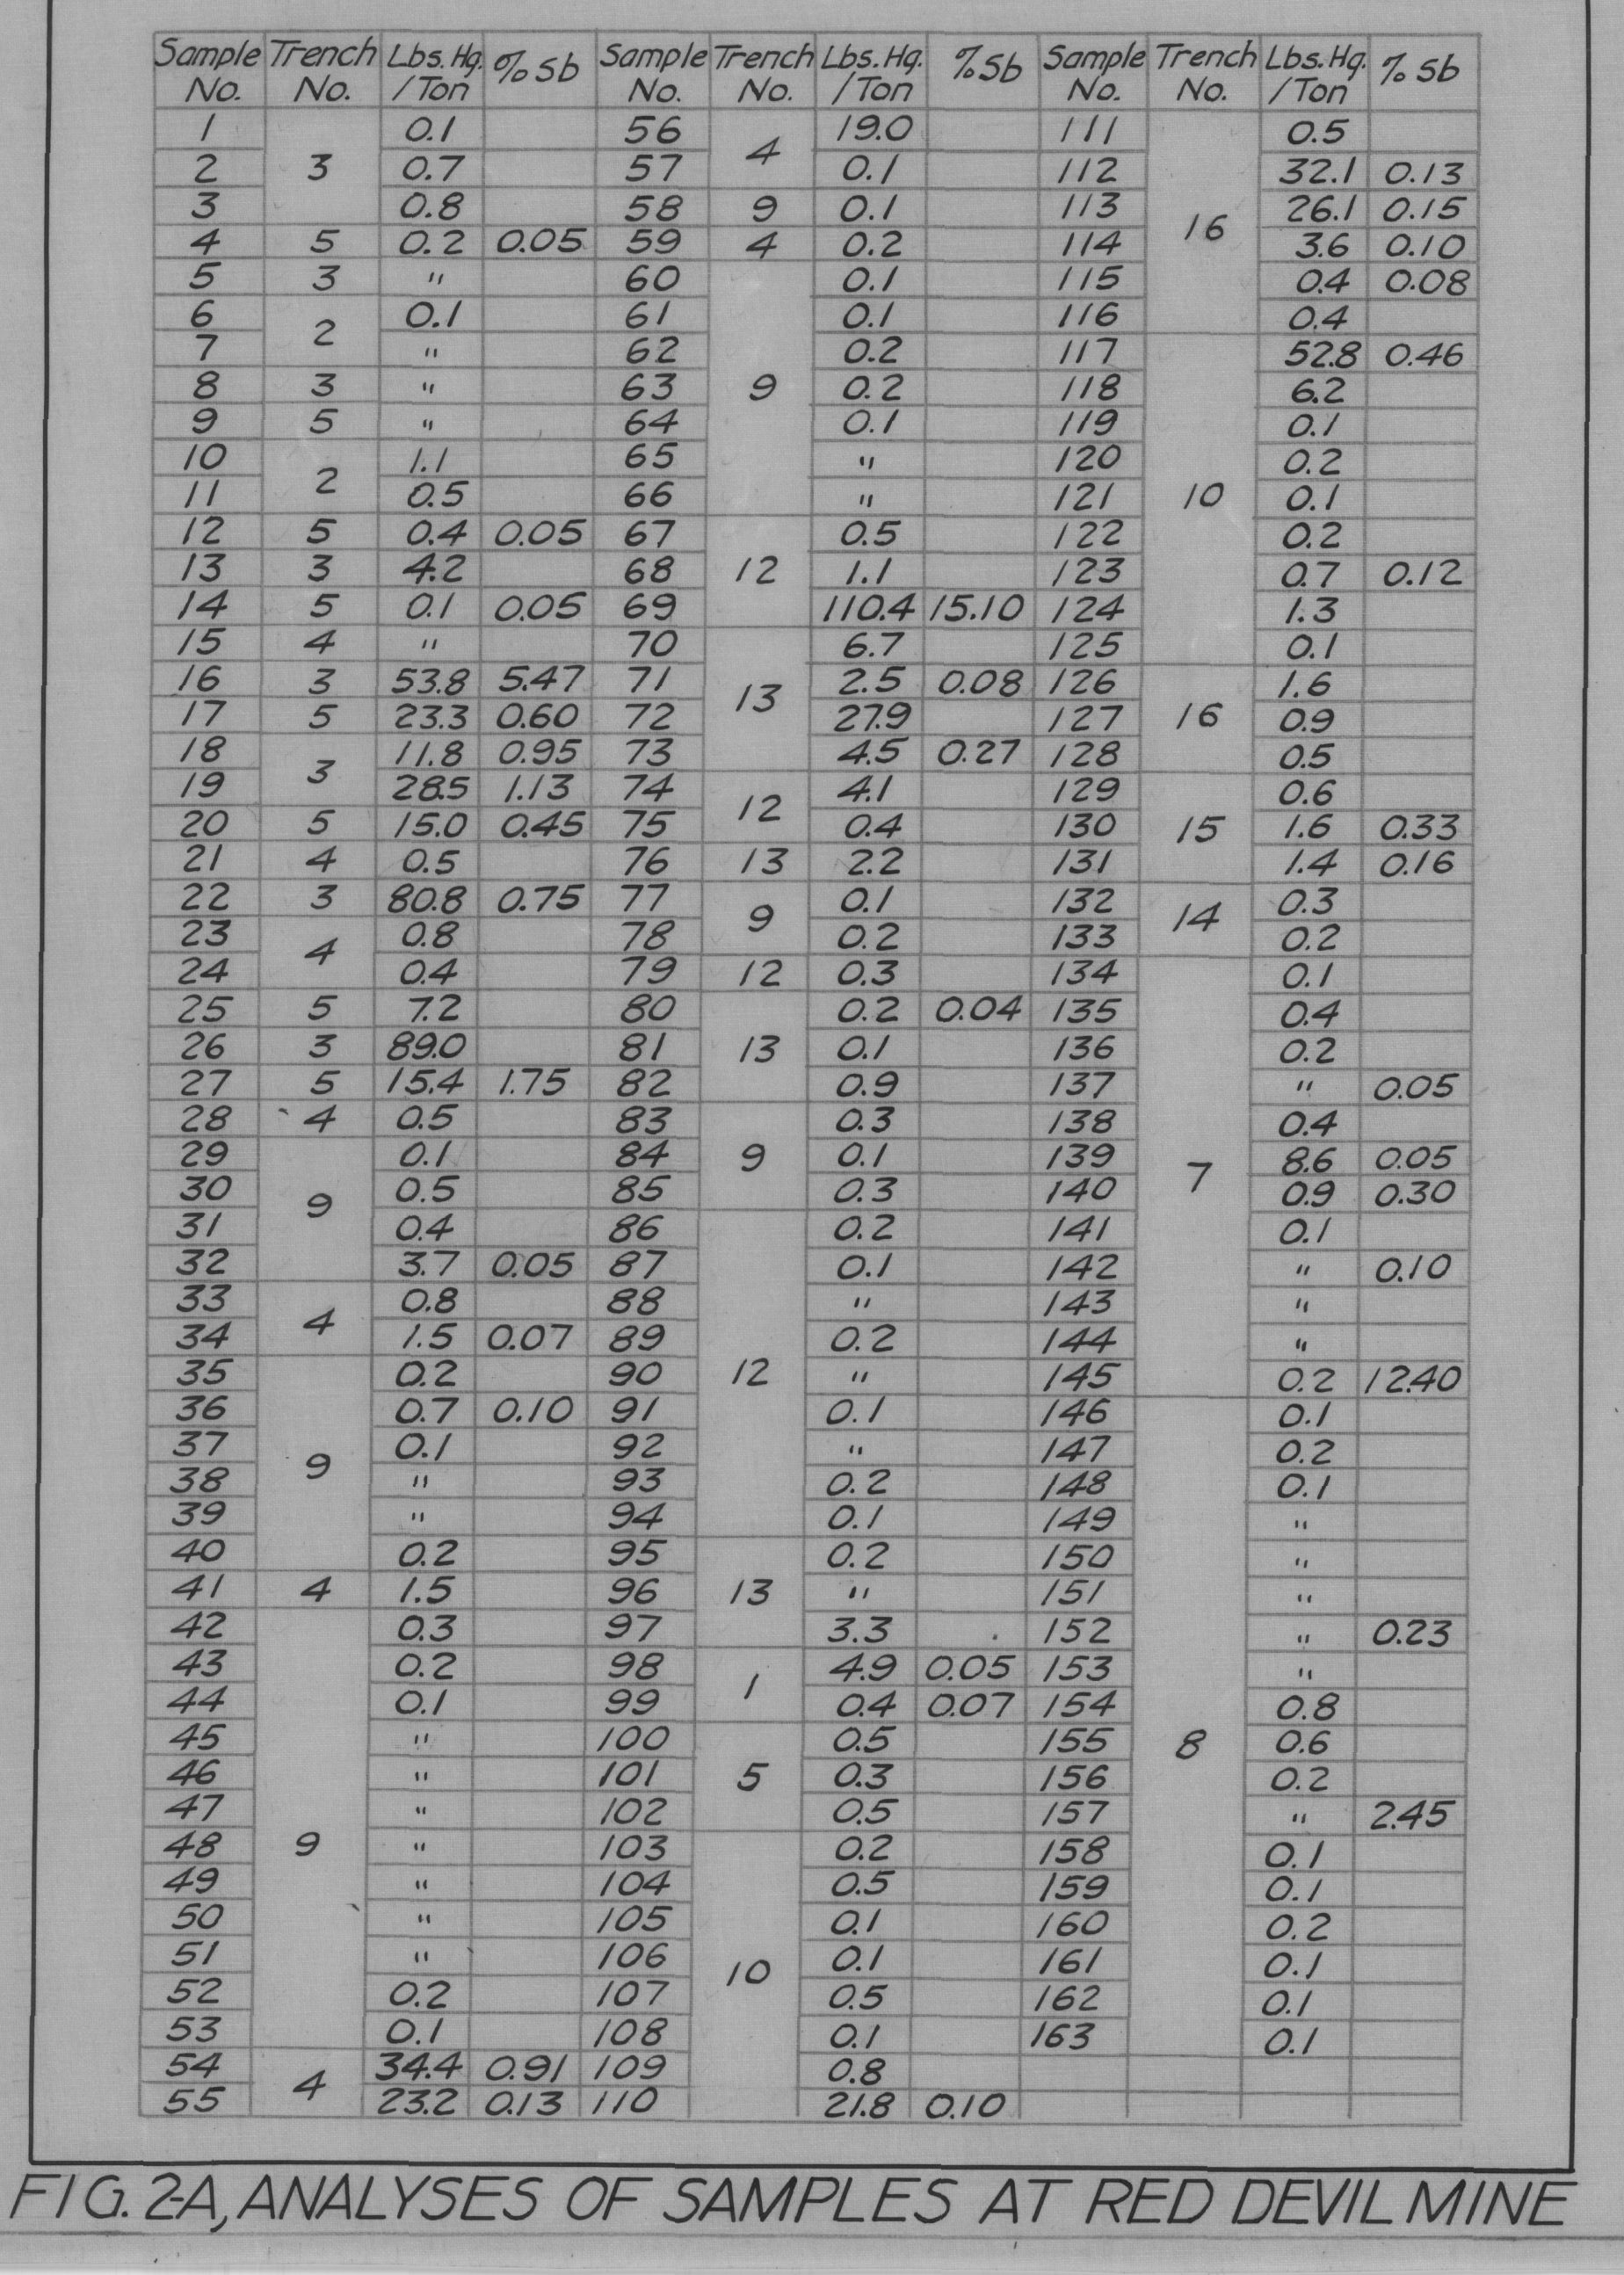 Sample No. Trench No. Lbs. Hg. /Ton % Sb Sample No. Trench No. Lbs. Hg. /Ton % Sb Sample No. Trench No. Lbs. Hg. /Ton % Sb
1 0.1 56 19.0 111 0.5
2 3 0.7 57 4 0.1 112 32.1 0.13
3 0.8 58 9 0.1 113 26.1 0.15
4 5 0.2 0.05 59 4 0.2 114 16 3.6 0.10
5 3 " 60 0.1 115 0.4 0.08
6 0.1 61 0.1 116 0.4
7 2 " 62 0.2 117 52.8 0.46
8 3 " 63 9 0.2 118 6.2
9 5 " 64 0.1 119 0.1
10 1.1 65 " 120 0.2
11 2 0.5 66 " 121 10 0.1
12 5 0.4 0.05 67 0.5 122 0.2
13 3 4.2 68 12 1.1 123 0.7 0.12
14 5 0.1 0.05 69 110.4 15.10 124 1.3
15 4 " 70 6.7 125 0.1
16 3 53.8 5.47 71 2.5 0.08 126 1.6
17 5 23.3 0.60 72 13 27.9 127 16 0.9
18 11.8 0.95 73 4.5 0.27 128 0.5
19 3 28.5 1.13 74 4.1 129 0.6
20 5 15.0 0.45 75 12 0.4 130 15 1.6 0.33
21 4 0.5 76 13 2.2 131 1.4 0.16
22 3 80.8 0.75 77 0.1 132 14 0.3
23 0.8 78 9 0.2 133 0.2
24 4 0.4 79 12 0.3 134 0.1
25 5 7.2 80 0.2 0.04 135 0.4
26 3 89.0 81 13 0.1 136 0.2
27 5 15.4 1.75 82 0.9 137 " 0.05
28 4 0.5 83 0.3 138 0.4
29 0.1 84 9 0.1 139 8.6 0.05
30 9 0.5 85 0.3 140 7 0.9 0.30
31 0.4 86 0.2 141 0.1
32 3.7 0.05 87 0.1 142 " 0.10
33 0.8 88 " 143 "
34 4 1.5 0.07 89 0.2 144 "
35 0.2 90 12 " 145 0.2 12.40
36 0.7 0.10 91 0.1 146 0.1
37 0.1 92 " 147 0.2
38 9 " 93 0.2 148 0.1
39 " 94 0.1 149 "
40 0.2 95 0.2 150 "
41 4 1.5 96 13 " 151 "
42 0.3 97 3.3 152 " 0.23
43 0.2 98 4.9 0.05 153 "
44 0.1 99 1 0.4 0.07 154 0.8
45 " 100 0.5 155 8 0.6
46 " 101 5 0.3 156 0.2
47 " 102 0.5 157 " 2.45
48 9 " 103 0.2 158 0.1
49 " 104 0.5 159 0.1
50 " 105 0.1 160 0.2
51 " 106 10 0.1 161 0.1
52 0.2 107 0.5 162 0.1
53 0.1 108 0.1 163 0.1
54 34.4 0.91 109 0.8
55 4 23.2 0.13 110 21.8 0.10
FIG. 2-A, ANALYSES OF SAMPLES AT RED DEVIL MINE